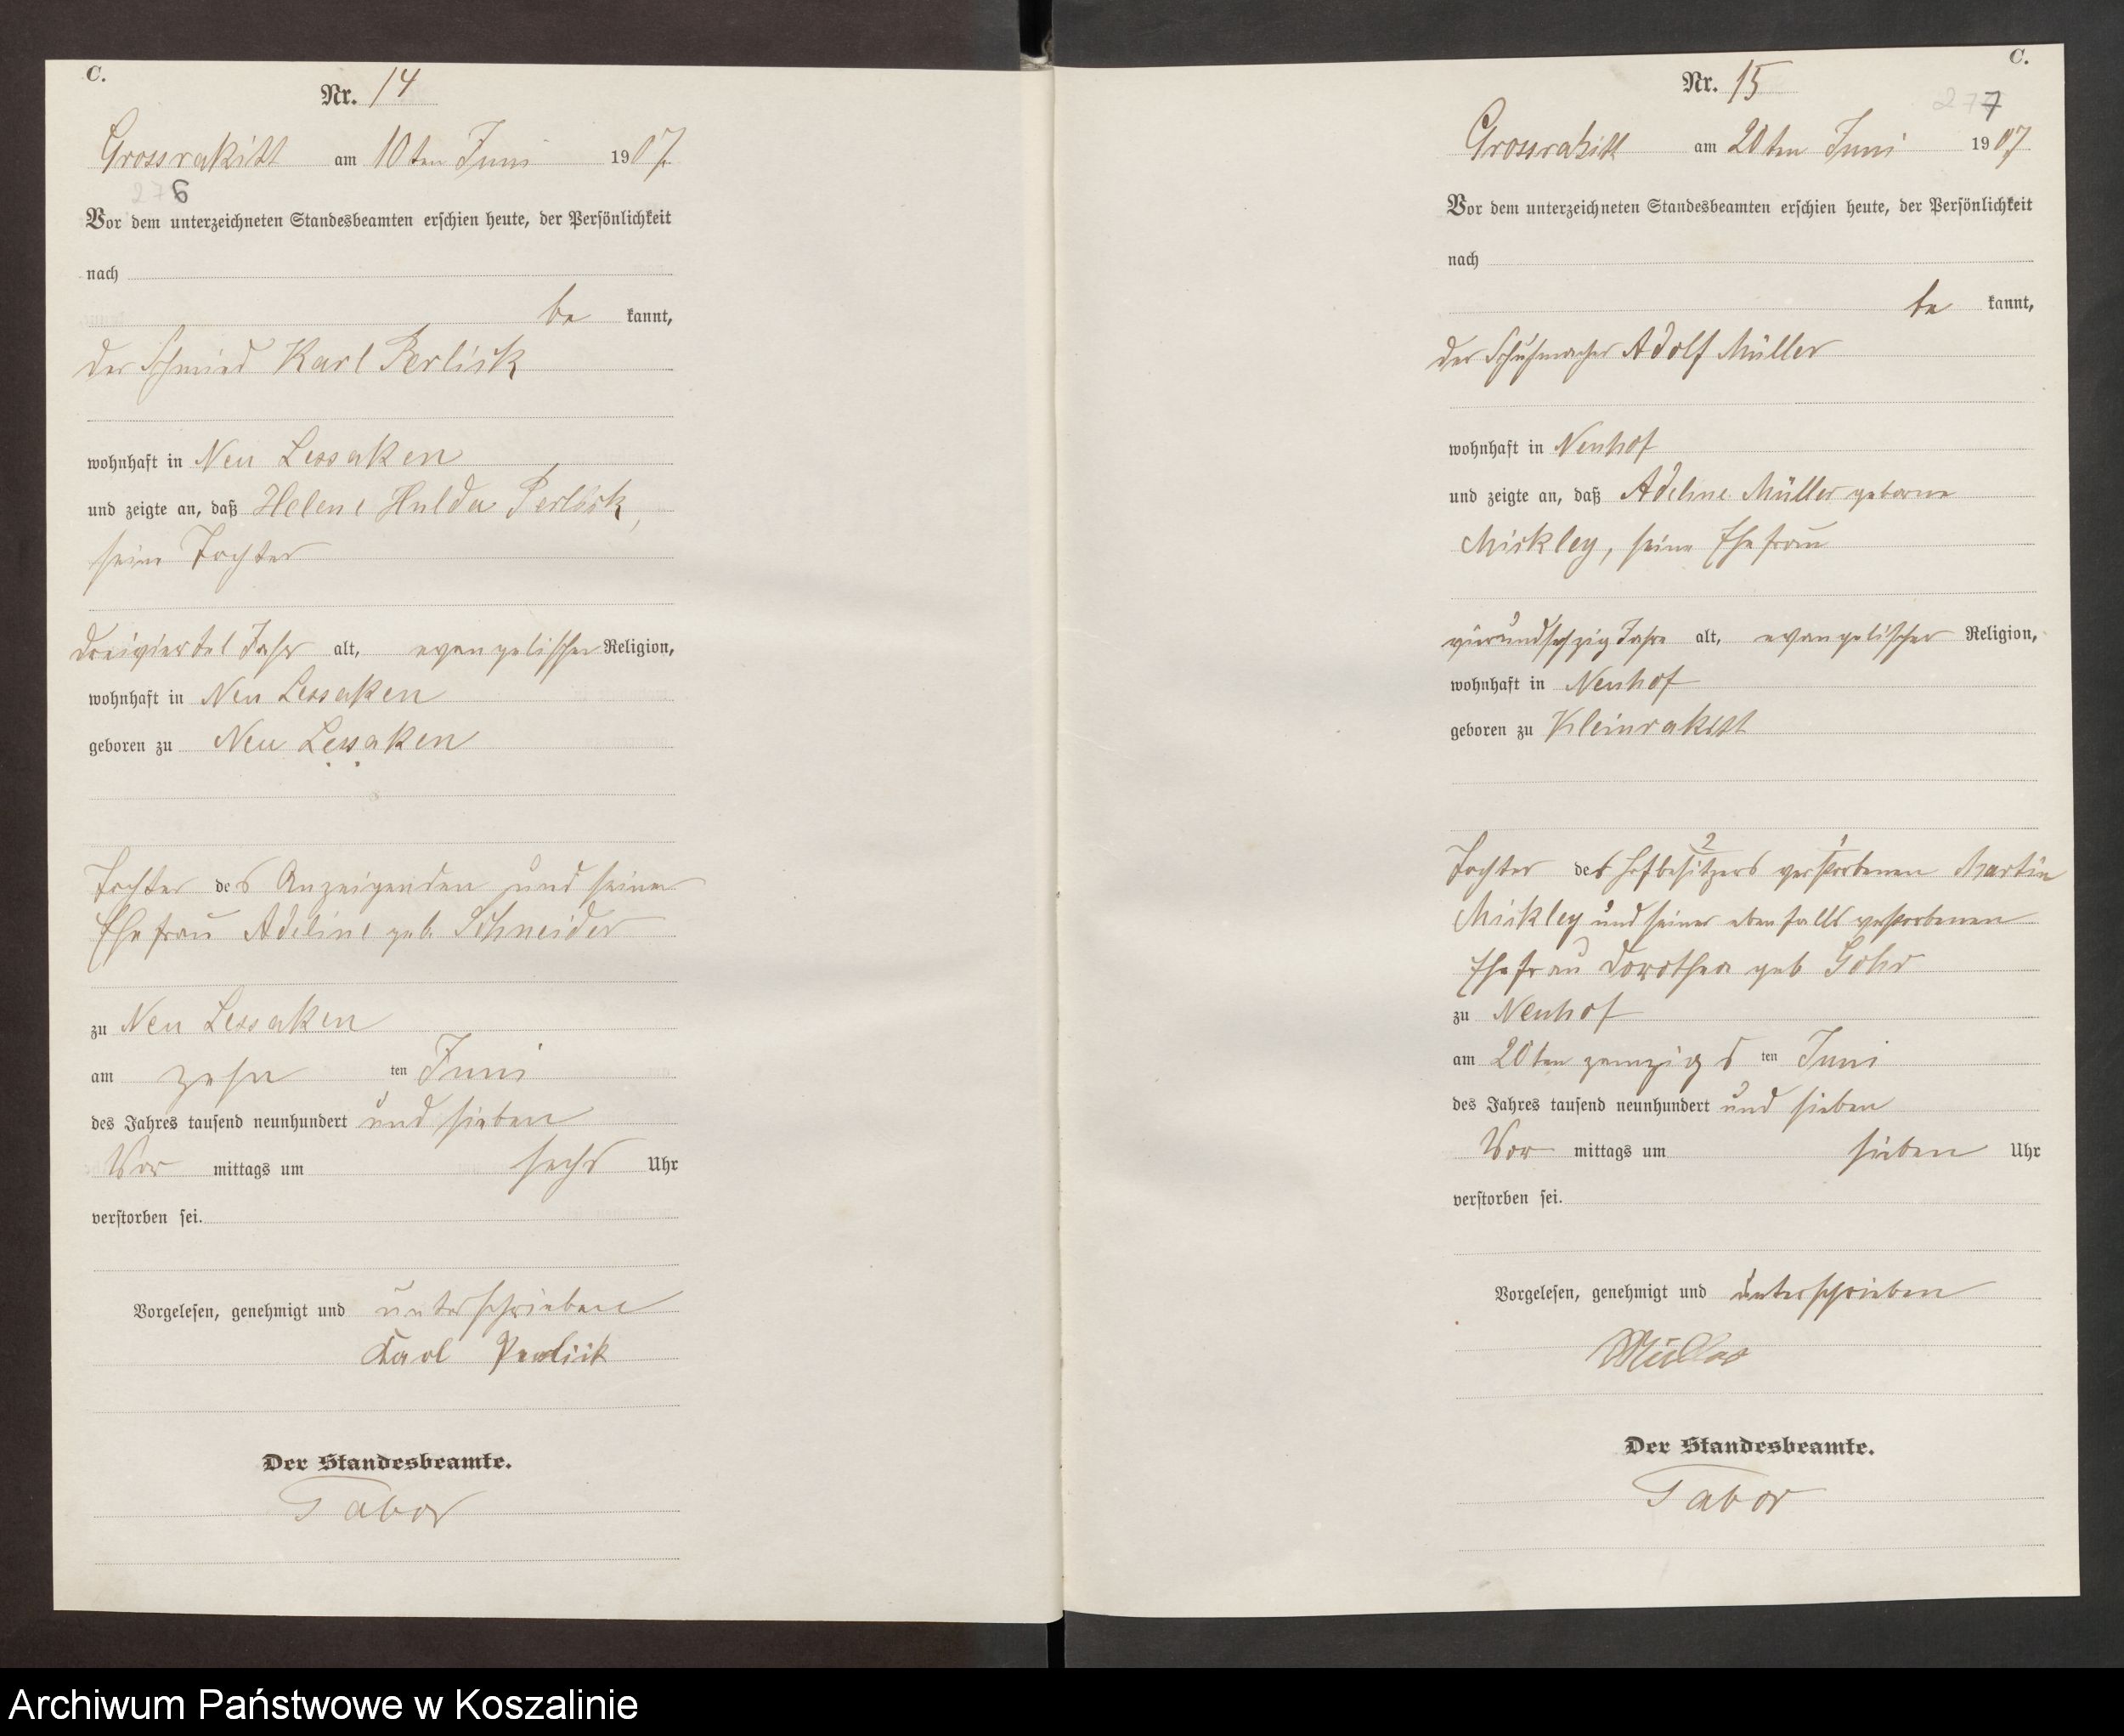 C.
Nr. 14
Grossrakitt am 10ten Juni 1907.
276
Vor dem unterzeichneten Standesbeamten erschien heute, der Persönlichkeit
nach
be kannt,
der Schmied Karl Perlick
wohnhaft in Neu Lessaken
und zeigte an, daß Helene Hulda Perlick,
seine Tochter
dreiviertel Jahr alt, evangelischer Religion,
wohnhaft in Neu Lessaken
geboren zu Neu Lessaken
Tochter des Anzeigenden und seiner
Ehefrau Adeline geb. Schneider
zu Neu Lessaken
am zehn ten Juni
des Jahres tausend neunhundert und sieben
Vor mittags um sechs Uhr
verstorben sei.
Vorgelesen, genehmigt und unterschrieben
Karl Perlick
Der Standesbeamte.
Tabor
C.
Nr. 15
277
Grossrakitt am 20ten Juni 1907.
Vor dem unterzeichneten Standesbeamten erschien heute, der Persönlichkeit
nach
be kannt,
der Schuhmacher Adolf Müller
wohnhaft in Neuhof
und zeigte an, daß Adeline Müller geborne
Mickley, seine Ehefrau
vierundsechzig Jahre alt, evangelischer Religion,
wohnhaft in Neuhof
geboren zu Kleinrakitt
2 1
Tochter des Hofbesitzers verstorbenen Martin
Mickley und seiner ebenfalls verstorbenen
Ehefrau Dorothea geb Gohr
zu Neuhof
am 20ten zwanzigs ten Juni
des Jahres tausend neunhundert und sieben
Vor mittags um sieben Uhr
verstorben sei.
Vorgelesen, genehmigt und unterschrieben
Müller
Der Standesbeamte.
Tabor
Archiwum Państwowe w Koszalinie